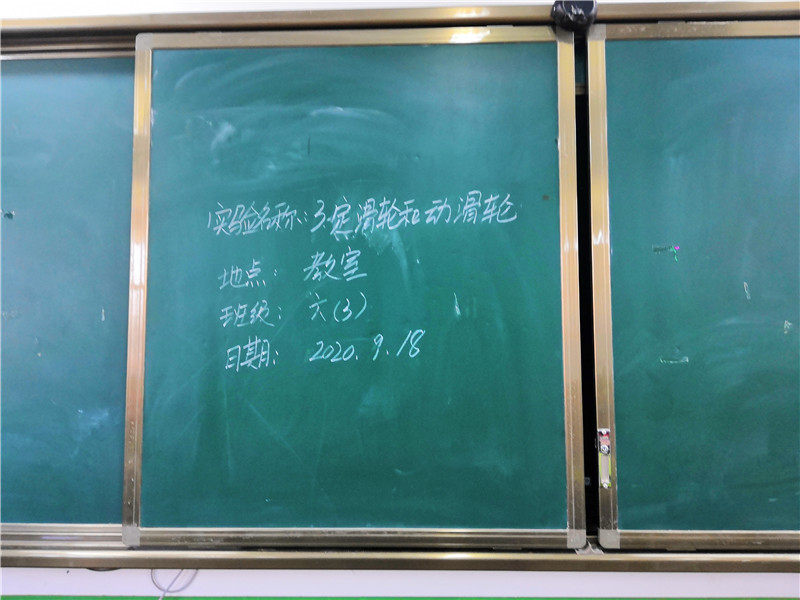 实验名称：3.定滑轮和动滑轮
地点：教室
班级：六（3）
日期：2020.9.18